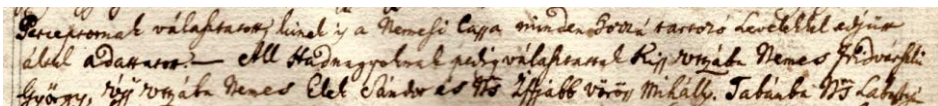 Perceptornak választatott kinek is a Nemesi Cassa minden Hozzá tartozó Levelekkel edjütt
által adattatott. — All Hadnagyoknak pedig választattak Kiss utzába Nemes Földvárszki
György, Új utzába Nemes Elek Sándor és Ns Iffjabb Vörös Mihály. Tabánba Ns